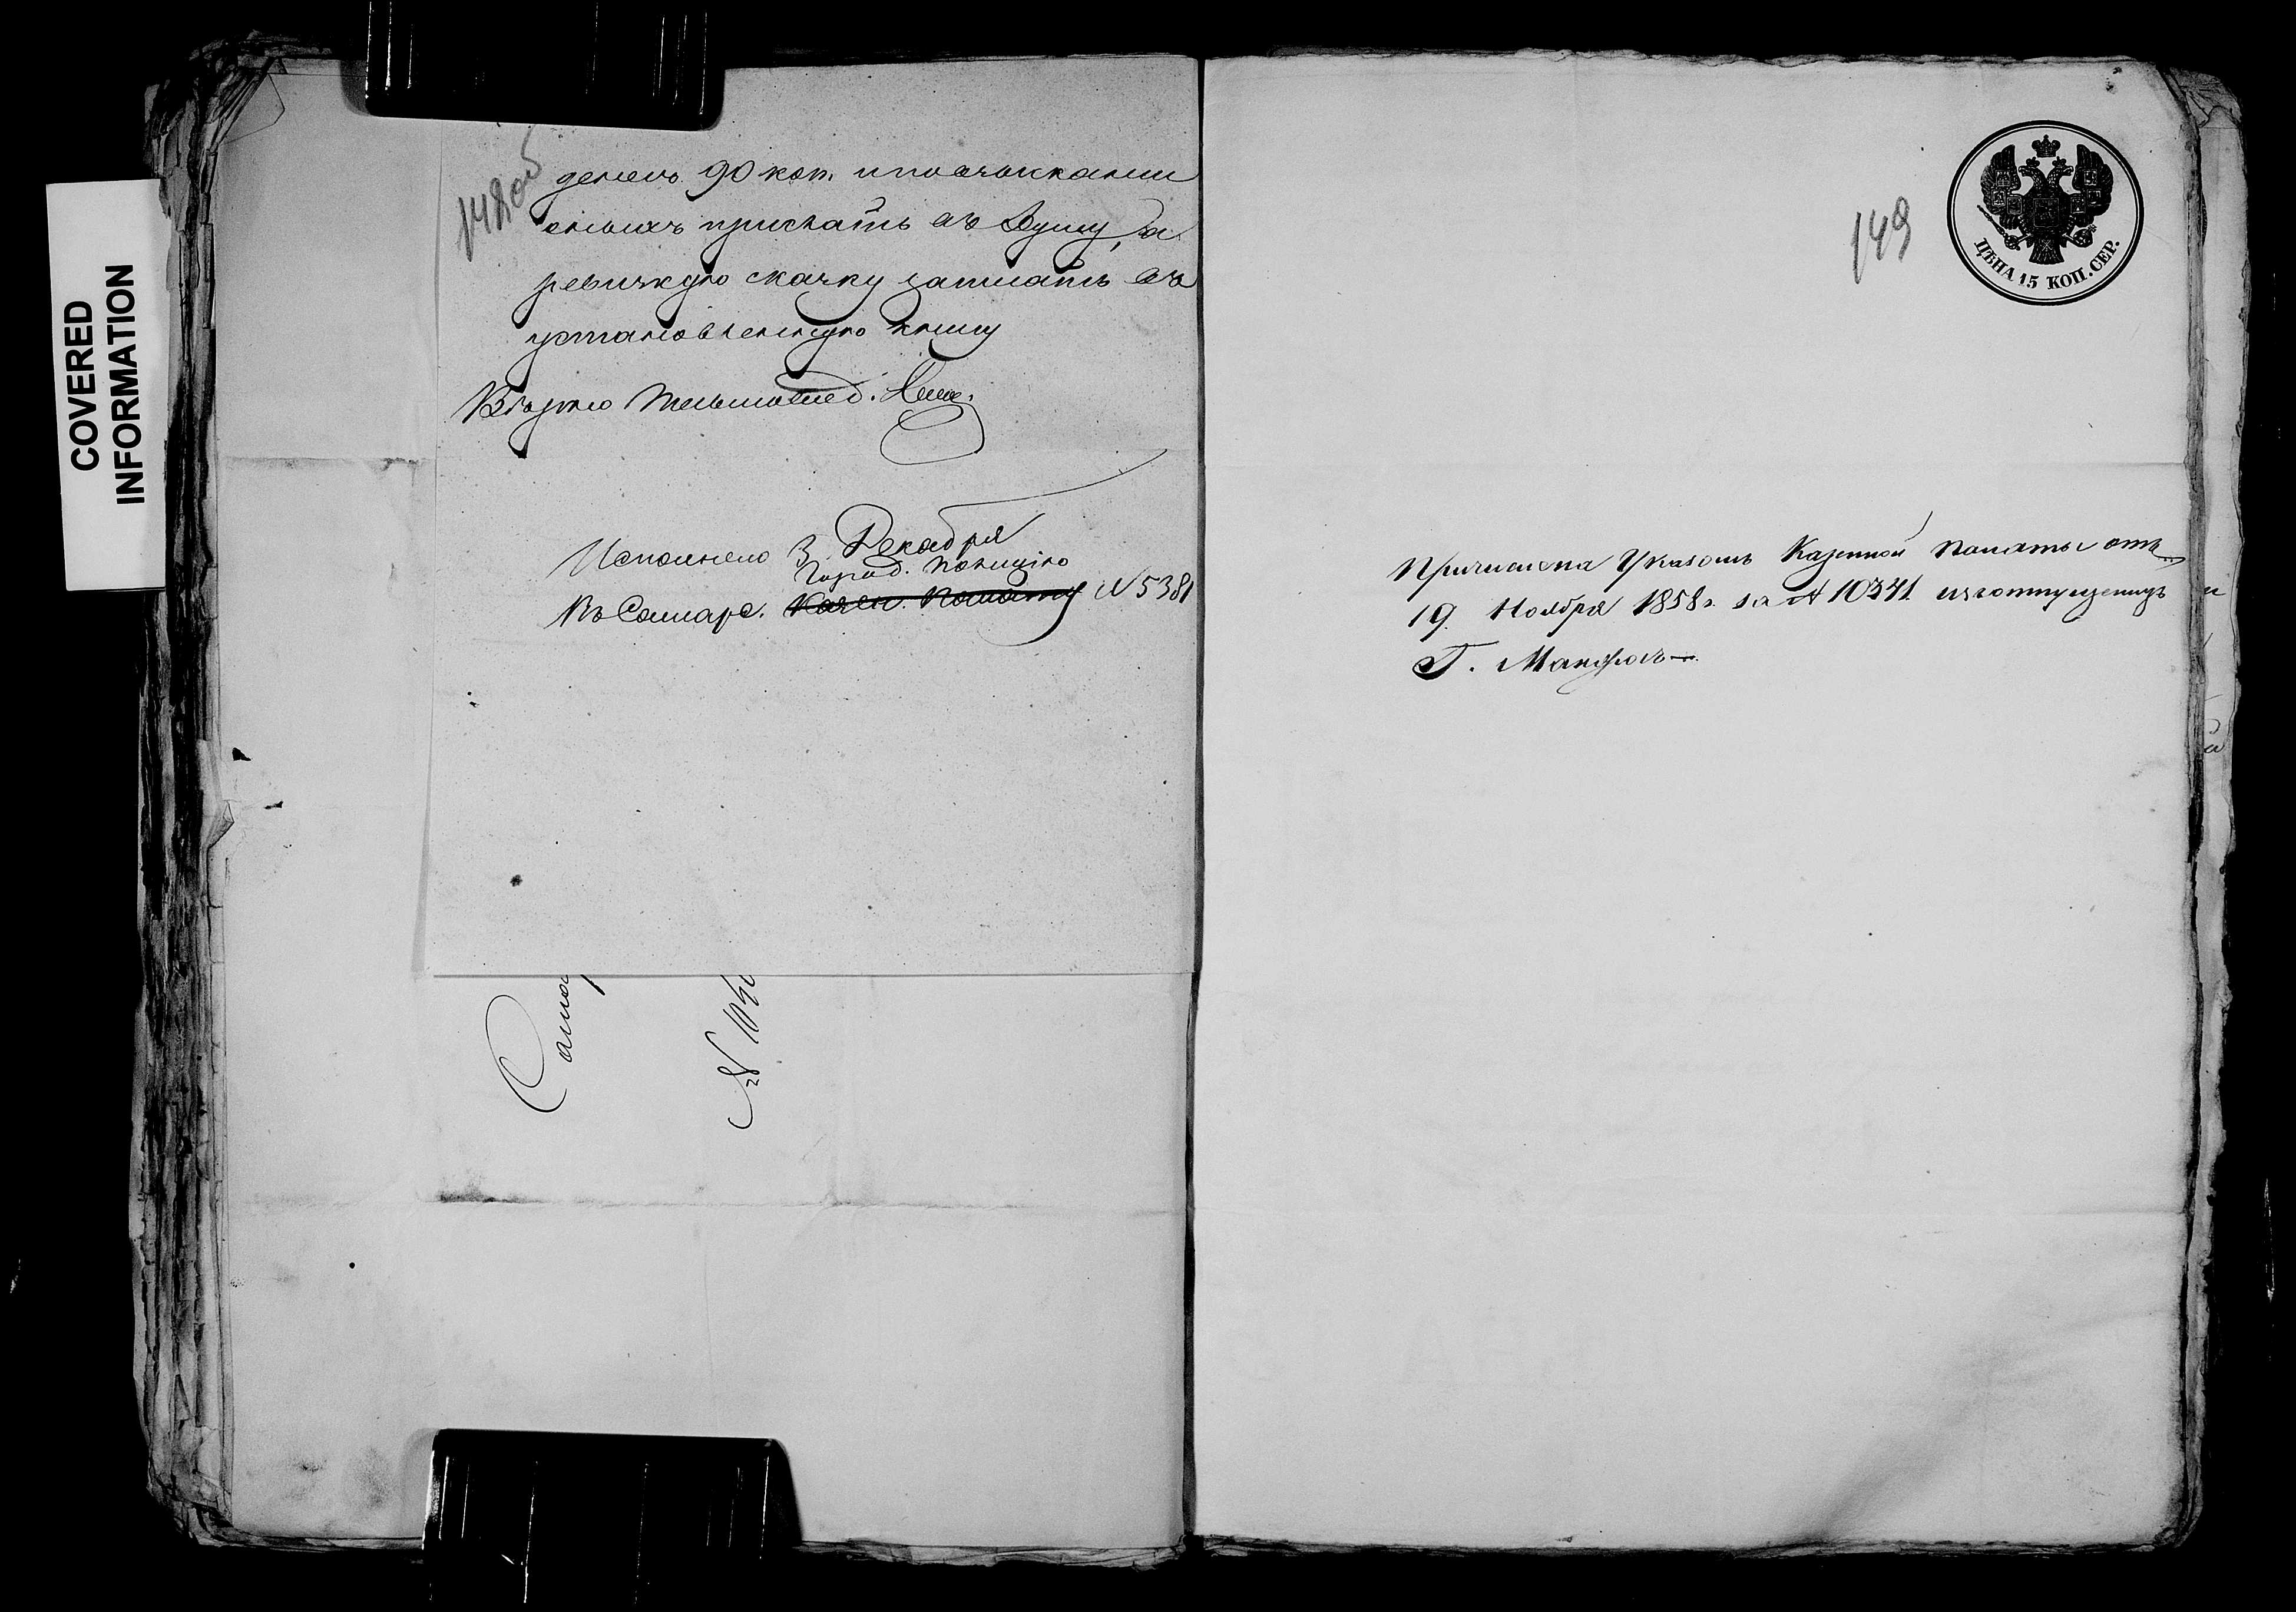 COVERED
INFORMATION
148об
денегъ 90 коп. и по взысканіи
оныхъ прислать въ Думу, а
ревизкую скаску записать въ
установленную книгу
Исполнено 3 Декабря
Город. Полицію
Въ Самарс. Казен. Палату N 5381
Самар
№ 1050
149
ЦѢНА 15 КОП. СЕР.
Причислена Указомъ Казенной Палаты отъ
19 Ноября 1858 г. за № 10371 изъ отпущенныхъ
Г.